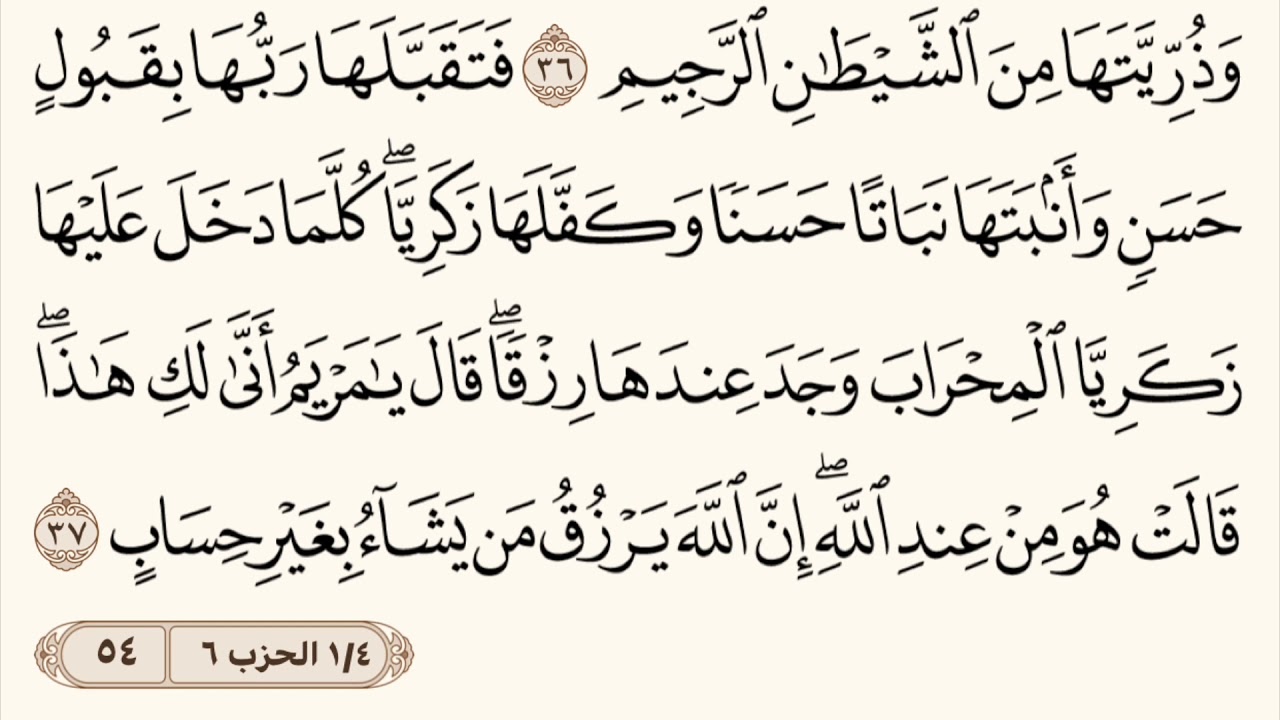 وَذُرِّيَّتَهَا مِنَ ٱلشَّيۡطَٰنِ ٱلرَّجِيمِ ٣٦ فَتَقَبَّلَهَا رَبُّهَا بِقَبُولٍ
حَسَنٖ وَأَنۢبَتَهَا نَبَاتًا حَسَنٗا وَكَفَّلَهَا زَكَرِيَّاۖ كُلَّمَا دَخَلَ عَلَيۡهَا
زَكَرِيَّا ٱلۡمِحۡرَابَ وَجَدَ عِندَهَا رِزۡقٗاۖ قَالَ يَٰمَرۡيَمُ أَنَّىٰ لَكِ هَٰذَاۖ
قَالَتۡ هُوَ مِنۡ عِندِ ٱللَّهِۖ إِنَّ ٱللَّهَ يَرۡزُقُ مَن يَشَآءُ بِغَيۡرِ حِسَابٍ ٣٧
١/٤ الحزب ٦ ٥٤